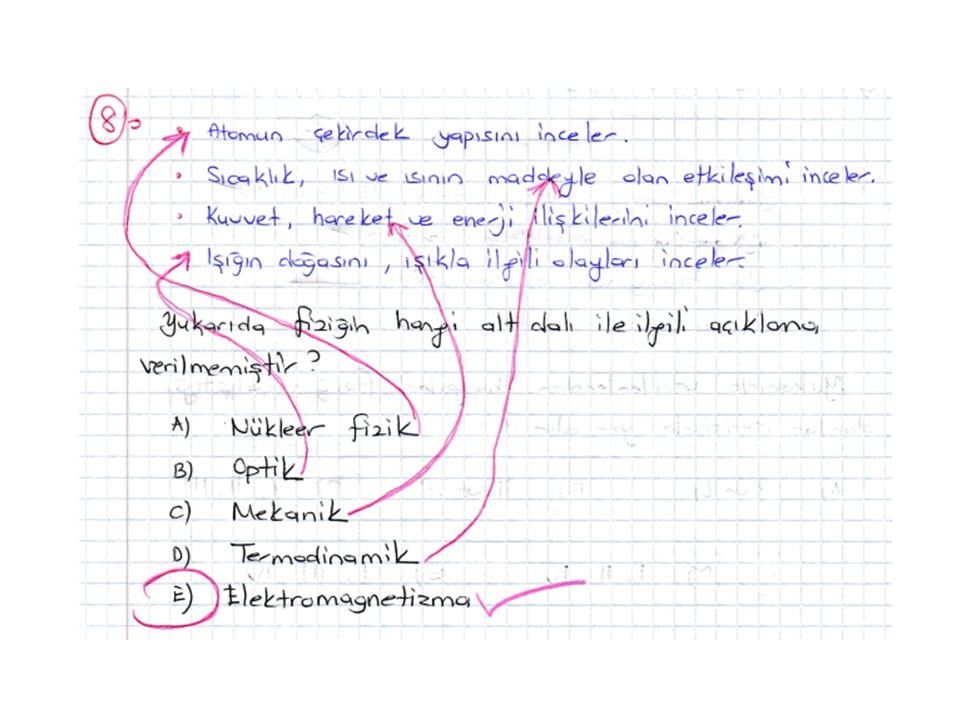 8-
• Atomun çekirdek yapısını inceler.
• Sıcaklık, ısı ve ısının maddeyle olan etkileşimi inceler.
• Kuvvet, hareket ve enerji ilişkilerini inceler.
• Işığın doğasını, ışıkla ilgili olayları inceler.
Yukarıda fiziğin hangi alt dalı ile ilgili açıklama
verilmemiştir?
A) Nükleer fizik
B) Optik
C) Mekanik
D) Termodinamik
E) Elektromagnetizma